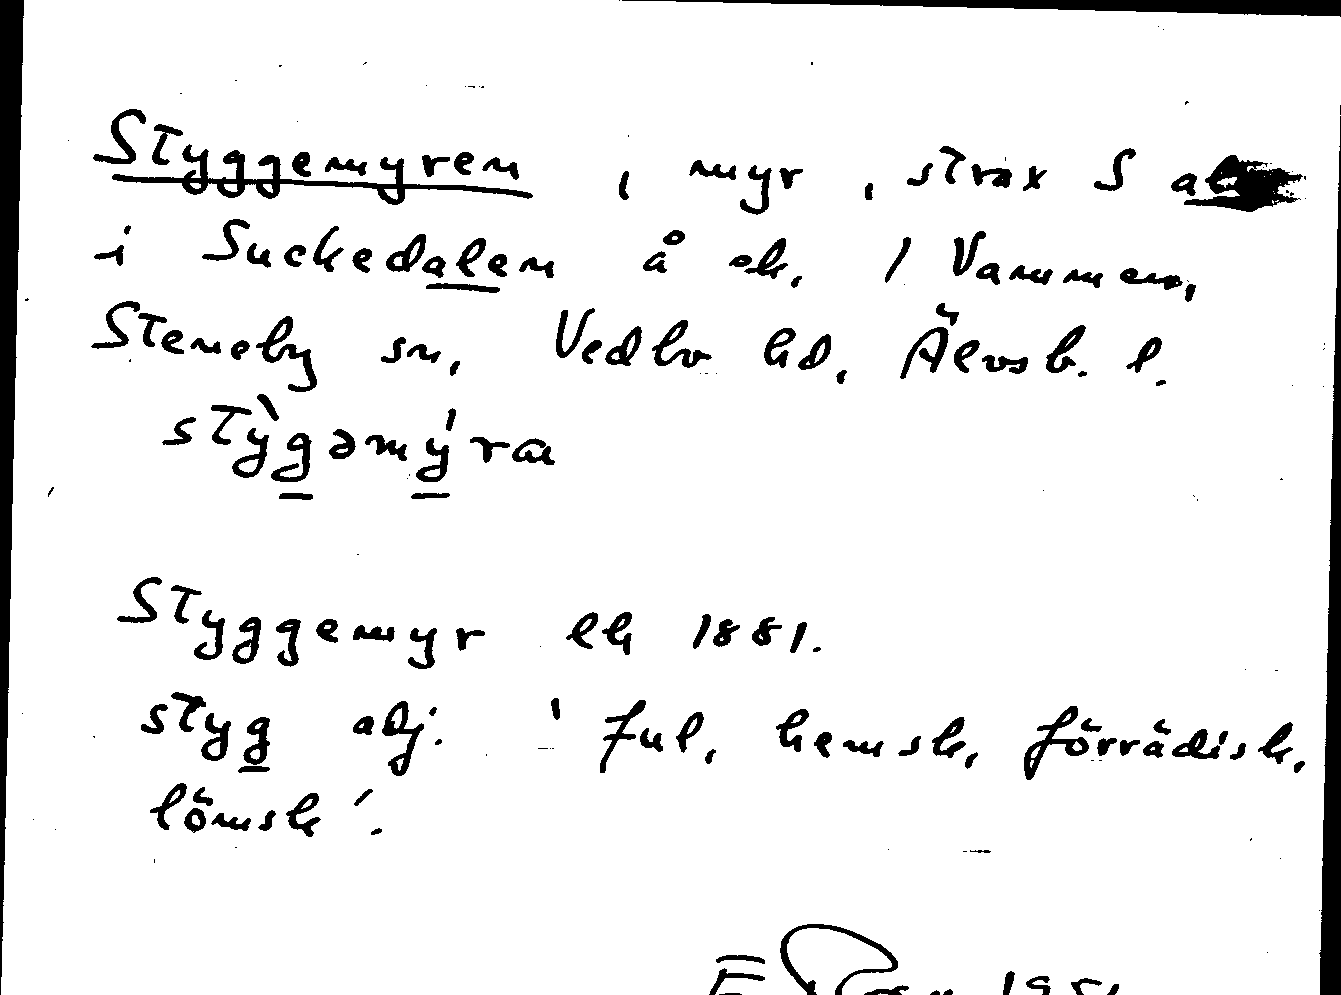 Styggemyren, myr, strax S
i Suckedalen å ek. 1 Vammen,
Steneby sn, Vedbo hd, Älvsb. l.
stỳgəmýra
Styggemyr ek 1881.
styg adj. 'ful, hemsk, förrädisk,
lömsk'.